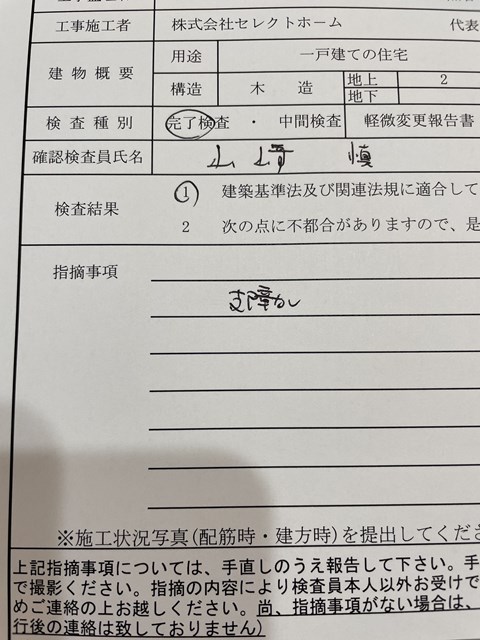 工事施工者 株式会社セレクトホーム 代表
建物概要 用途 一戸建ての住宅
構造 木造 地上 2
地下
検査種別 完了検査 ・ 中間検査 軽微変更報告書
確認検査員氏名 山﨑 慎
検査結果 1 建築基準法及び関連法規に適合して
2 次の点に不都合がありますので、是
指摘事項
支障なし
※施工状況写真(配筋時・建方時)を提出してくださ
上記指摘事項については、手直しのうえ報告して下さい。手
で撮影ください。指摘の内容により検査員本人以外お受けで
めご連絡の上お越しください。尚、指摘事項がない場合は、
行後の連絡は致しておりません)